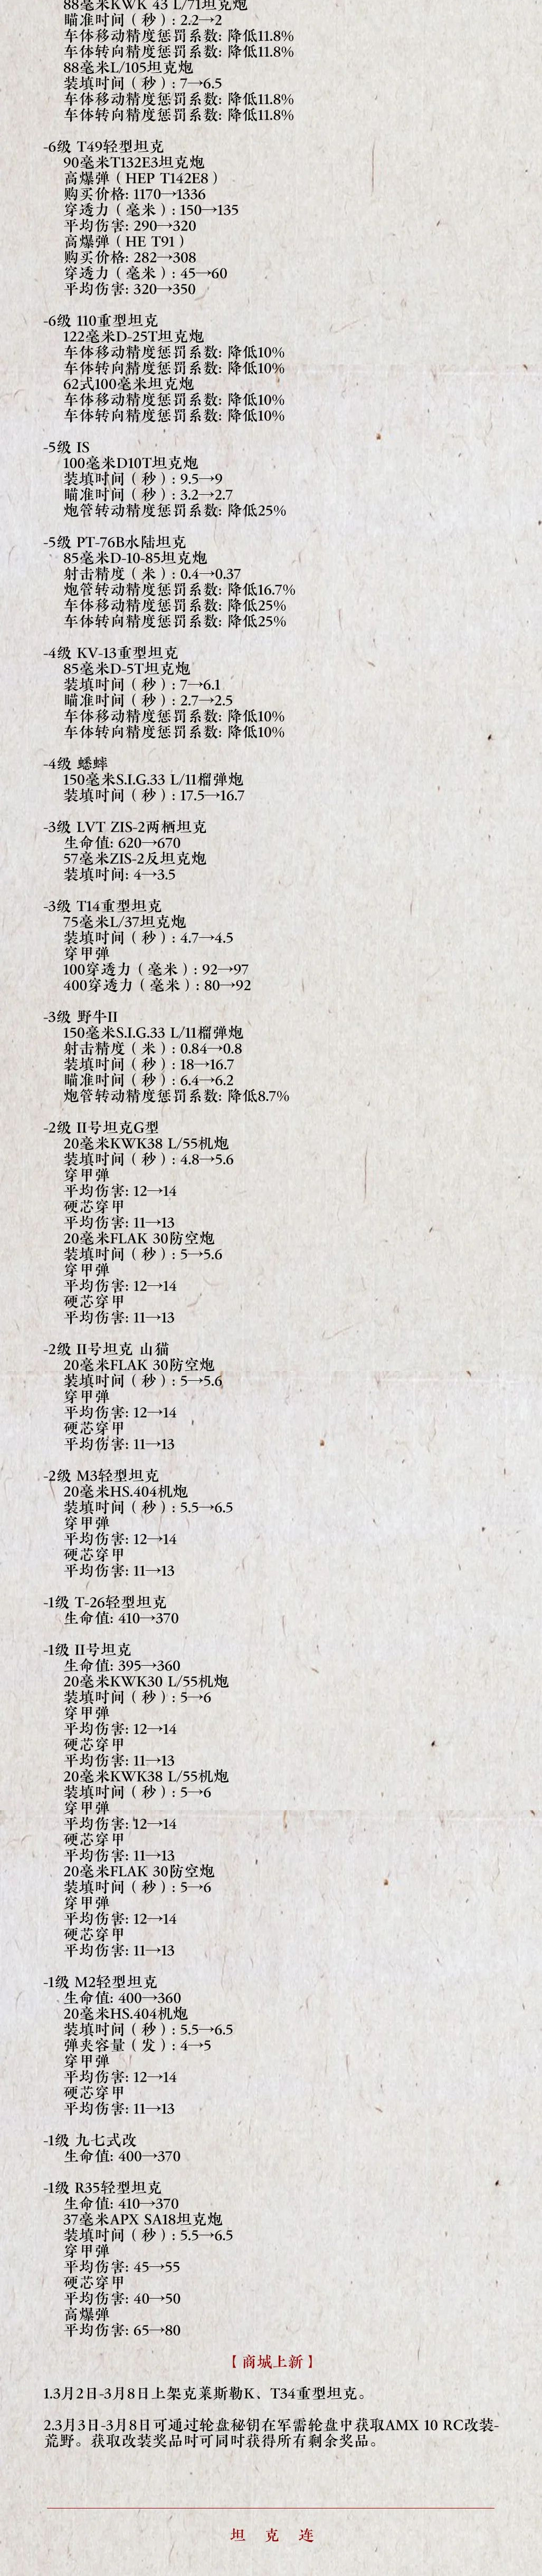 88毫米KWK 43 L/71坦克炮
瞄准时间（秒）: 2.2→2
车体移动精度惩罚系数: 降低11.8%
车体转向精度惩罚系数: 降低11.8%
88毫米L/105坦克炮
装填时间（秒）: 7→6.5
车体移动精度惩罚系数: 降低11.8%
车体转向精度惩罚系数: 降低11.8%
-6级 T49轻型坦克
90毫米T132E3坦克炮
高爆弹（HEP T142E8）
购买价格: 1170→1336
穿透力（毫米）: 150→135
平均伤害: 290→320
高爆弹（HE T91）
购买价格: 282→308
穿透力（毫米）: 45→60
平均伤害: 320→350
-6级 110重型坦克
122毫米D-25T坦克炮
车体移动精度惩罚系数: 降低10%
车体转向精度惩罚系数: 降低10%
62式100毫米坦克炮
车体移动精度惩罚系数: 降低10%
车体转向精度惩罚系数: 降低10%
-5级 IS
100毫米D10T坦克炮
装填时间（秒）: 9.5→9
瞄准时间（秒）: 3.2→2.7
炮管转动精度惩罚系数: 降低25%
-5级 PT-76B水陆坦克
85毫米D-10-85坦克炮
射击精度（米）: 0.4→0.37
炮管转动精度惩罚系数: 降低16.7%
车体移动精度惩罚系数: 降低25%
车体转向精度惩罚系数: 降低25%
-4级 KV-13重型坦克
85毫米D-5T坦克炮
装填时间（秒）: 7→6.1
瞄准时间（秒）: 2.7→2.5
车体移动精度惩罚系数: 降低10%
车体转向精度惩罚系数: 降低10%
-4级 蟋蟀
150毫米S.I.G.33 L/11榴弹炮
装填时间（秒）: 17.5→16.7
-3级 LVT ZIS-2两栖坦克
生命值: 620→670
57毫米ZIS-2反坦克炮
装填时间: 4→3.5
-3级 T14重型坦克
75毫米L/37坦克炮
装填时间（秒）: 4.7→4.5
穿甲弹
100穿透力（毫米）: 92→97
400穿透力（毫米）: 80→92
-3级 野牛II
150毫米S.I.G.33 L/11榴弹炮
射击精度（米）: 0.84→0.8
装填时间（秒）: 18→16.7
瞄准时间（秒）: 6.4→6.2
炮管转动精度惩罚系数: 降低8.7%
-2级 II号坦克G型
20毫米KWK38 L/55机炮
装填时间（秒）: 4.8→5.6
穿甲弹
平均伤害: 12→14
硬芯穿甲
平均伤害: 11→13
20毫米FLAK 30防空炮
装填时间（秒）: 5→5.6
穿甲弹
平均伤害: 12→14
硬芯穿甲
平均伤害: 11→13
-2级 II号坦克 山猫
20毫米FLAK 30防空炮
装填时间（秒）: 5→5.6
穿甲弹
平均伤害: 12→14
硬芯穿甲
平均伤害: 11→13
-2级 M3轻型坦克
20毫米HS.404机炮
装填时间（秒）: 5.5→6.5
穿甲弹
平均伤害: 12→14
硬芯穿甲
平均伤害: 11→13
-1级 T-26轻型坦克
生命值: 410→370
-1级 II号坦克
生命值: 395→360
20毫米KWK30 L/55机炮
装填时间（秒）: 5→6
穿甲弹
平均伤害: 12→14
硬芯穿甲
平均伤害: 11→13
20毫米KWK38 L/55机炮
装填时间（秒）: 5→6
穿甲弹
平均伤害: 12→14
硬芯穿甲
平均伤害: 11→13
20毫米FLAK 30防空炮
装填时间（秒）: 5→6
穿甲弹
平均伤害: 12→14
硬芯穿甲
平均伤害: 11→13
-1级 M2轻型坦克
生命值: 400→360
20毫米HS.404机炮
装填时间（秒）: 5.5→6.5
弹夹容量（发）: 4→5
穿甲弹
平均伤害: 12→14
硬芯穿甲
平均伤害: 11→13
-1级 九七式改
生命值: 400→370
-1级 R35轻型坦克
生命值: 410→370
37毫米APX SA18坦克炮
装填时间（秒）: 5.5→6.5
穿甲弹
平均伤害: 45→55
硬芯穿甲
平均伤害: 40→50
高爆弹
平均伤害: 65→80
【商城上新】
1.3月2日-3月8日上架克莱斯勒K、T34重型坦克。
2.3月3日-3月8日可通过轮盘秘钥在军需轮盘中获取AMX 10 RC改装-
荒野。获取改装奖品时可同时获得所有剩余奖品。
坦 克 连